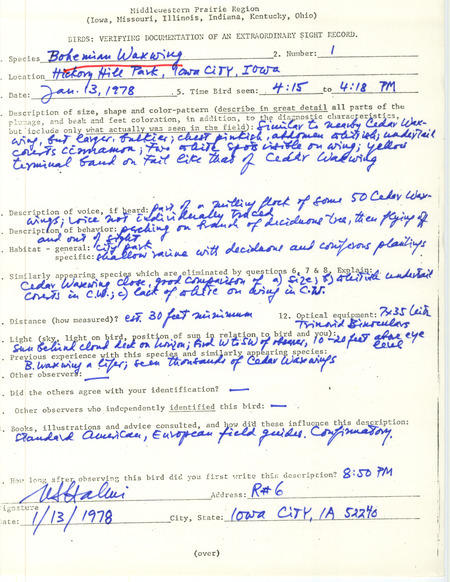 Middlewestern Prairie Region
(Iowa, Missouri, Illinois, Indiana, Kentucky, Ohio)
BIRDS: VERIFYING DOCUMENTATION OF AN EXTRAORDINARY SIGHT RECORD.
. Species Bohemian Waxwing 2. Number: 1
. Location Hickory Hill Park, Iowa City, Iowa
. Date: Jan. 13, 1978 5. Time Bird seen: 4:15 to 4:18 PM
. Description of size, shape and color-pattern (describe in great detail all parts of the
plumage, and beak and feet coloration, in addition, to the diagnostic characteristics,
but include only what actually was seen in the field): Similar to nearby Cedar Wax-
wing, but larger, bulkier; chest pinkish, abdomen whitish; undertail
coverts cinnamon; two white spots visible on wing; yellow
terminal band on tail like that of Cedar Waxwing
. Description of voice, if heard: part of a milling flock of some 50 Cedar Wax-
wings; voice not individually traced
. Description of behavior: perching on branch of deciduous tree, then flying off
and out of sight
. Habitat - general: city park
specific: shallow ravine with deciduous and coniferous plantings
. Similarly appearing species which are eliminated by questions 6, 7 & 8. Explain:
Cedar Waxwing close, good comparison of a) size; b) whitish undertail
coverts in C.W.; c) lack of white on wing in C.W.
. Distance (how measured)? est. 30 feet minimum 12. Optical equipment: 7x35 Leitz
Trinovid Binoculars
. Light (sky, light on bird, position of sun in relation to bird and you):
Sun behind cloud deck on horizon; bird W to SW of observer, 10-20 feet above eye
level
. Previous experience with this species and similarly appearing species:
B. waxwing a lifer; seen thousands of Cedar Waxwings
. Other observers: —
. Did the others agree with your identification? —
. Other observers who independently identified this bird: —
. Books, illustrations and advice consulted, and how did these influence this description:
Standard American, European field guides. Confirmatory.
. How long after observing this bird did you first write this description? 8:50 PM
ignature Address: R#6
ate: 1/13/1978 City, State: Iowa City, IA 52240
(over)